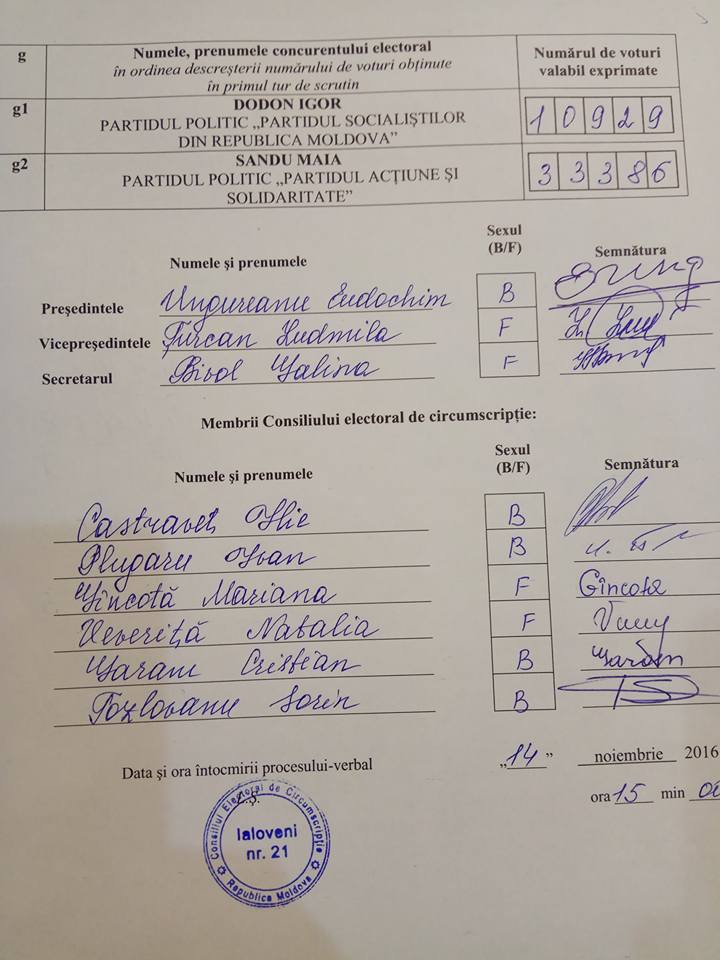 g Numele, prenumele concurentului electoral Numărul de voturi
în ordinea descreșterii numărului de voturi obținute valabil exprimate
în primul tur de scrutin
g1 DODON IGOR
PARTIDUL POLITIC „PARTIDUL SOCIALIȘTILOR 1 0 9 2 9
DIN REPUBLICA MOLDOVA”
g2 SANDU MAIA
PARTIDUL POLITIC „PARTIDUL ACȚIUNE ȘI 3 3 3 8 6
SOLIDARITATE”
Sexul
(B/F)
Numele și prenumele Semnătura
Președintele Ungureanu Eudochim B
Vicepreședintele Țurcan Ludmila F
Secretarul Bivol Galina F
Membrii Consiliului electoral de circumscripție:
Sexul
(B/F)
Numele și prenumele Semnătura
Castraveț Ilie B
Plugaru Ivan B
Gîncotă Mariana F Gîncotă
Veveriță Natalia F
Garam Cristian B
Tozlovanu Sorin B
Data și ora întocmirii procesului-verbal „14” noiembrie 2016
ora 15 min
L.Ș.
Consiliul Electoral de Circumscripție
Ialoveni
nr. 21
Republica Moldova